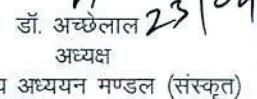 डॉ. अच्छेलाल 23/04
अध्यक्ष
अध्ययन मण्डल (संस्कृत)